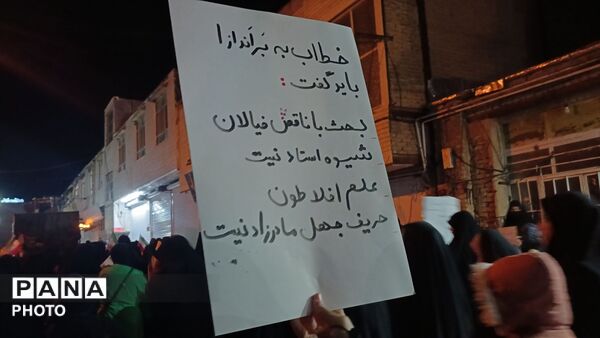 خطاب به بَراندازا
باید گفت :
بحث با ناقص خیالان
شیوه استاد نیست
علم افلاطون
حریف جهل مادرزاد نیست
PANA
PHOTO